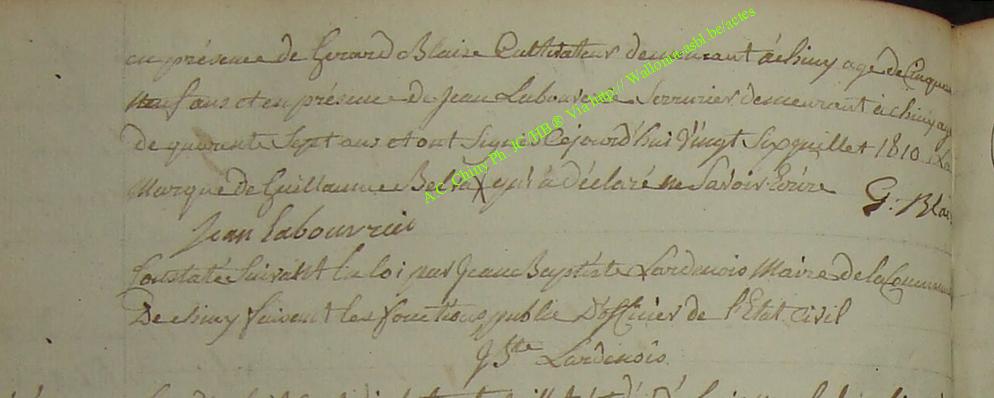 en présence de Gerard Blaise Cultivateur demeurant à chiny age de Cinquan
Neuf ans et en présence de Jean Labouvrie Serrurier demeurant à chiny age
de quarente Sept ans et ont Signes Cejourd'hui Vingt Six juillet 1810 La
Marque de Guillaume X qui à déclaré ne Savoir Ecrire G. Blai
Jean Labouvrie
Constatée Suivant la loi par Jean Baptiste Lardinois Maire de la Commune
De chiny faisent les fonctions public D'officier de l'Etat Civil
J Bte Lardinois
A.C. Chiny Ph. JC/HB ® Via http://Wallonia-asbl.be/actes